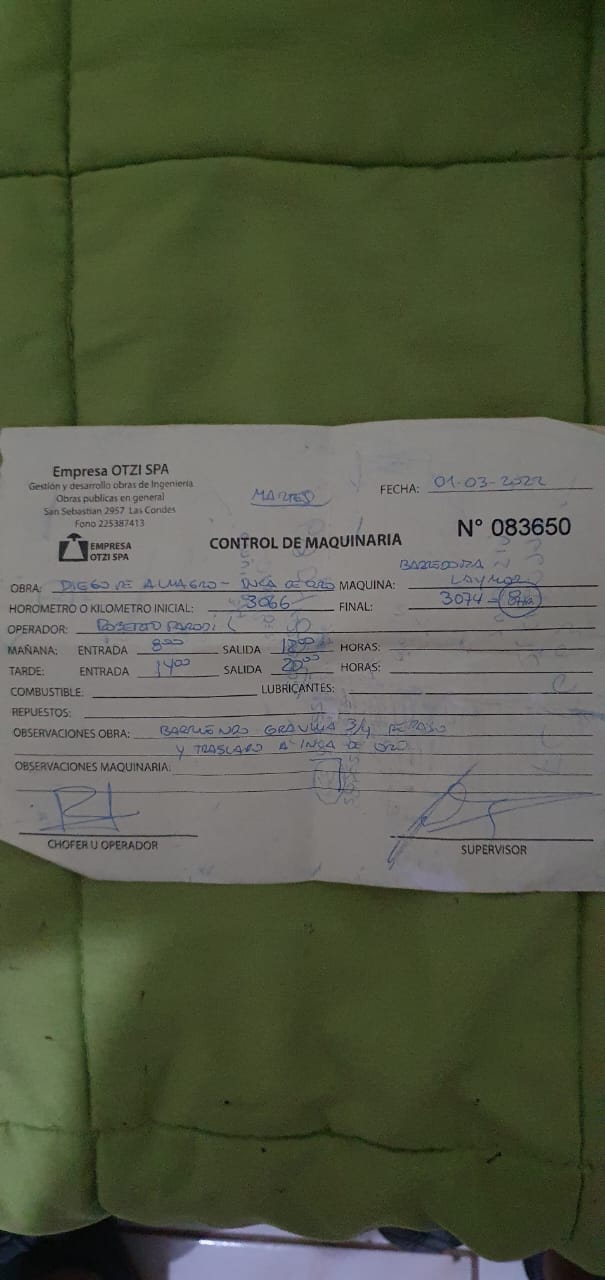 Empresa OTZI SPA
Gestión y desarrollo obras de Ingenieria
Obras publicas en general
San Sebastian 2957 Las Condes
Fono 225387413
EMPRESA
OTZI SPA
MARTES
FECHA: 01-03-2022
N° 083650
CONTROL DE MAQUINARIA
BARREDORA
OBRA: DIEGO DE ALMAGRO - INCA DE ORO MAQUINA: LAYMOR
HOROMETRO O KILOMETRO INICIAL: 3066 FINAL: 3074 = 8
OPERADOR: ROBERTO PARODI
MAÑANA: ENTRADA 8:00 SALIDA HORAS:
TARDE: ENTRADA 14:00 SALIDA 20:00 HORAS:
COMBUSTIBLE: LUBRICANTES:
REPUESTOS:
OBSERVACIONES OBRA: BARRIENDO GRAVILLA 3/4
Y TRASLADO A INCA DE ORO
OBSERVACIONES MAQUINARIA:
CHOFER U OPERADOR
SUPERVISOR